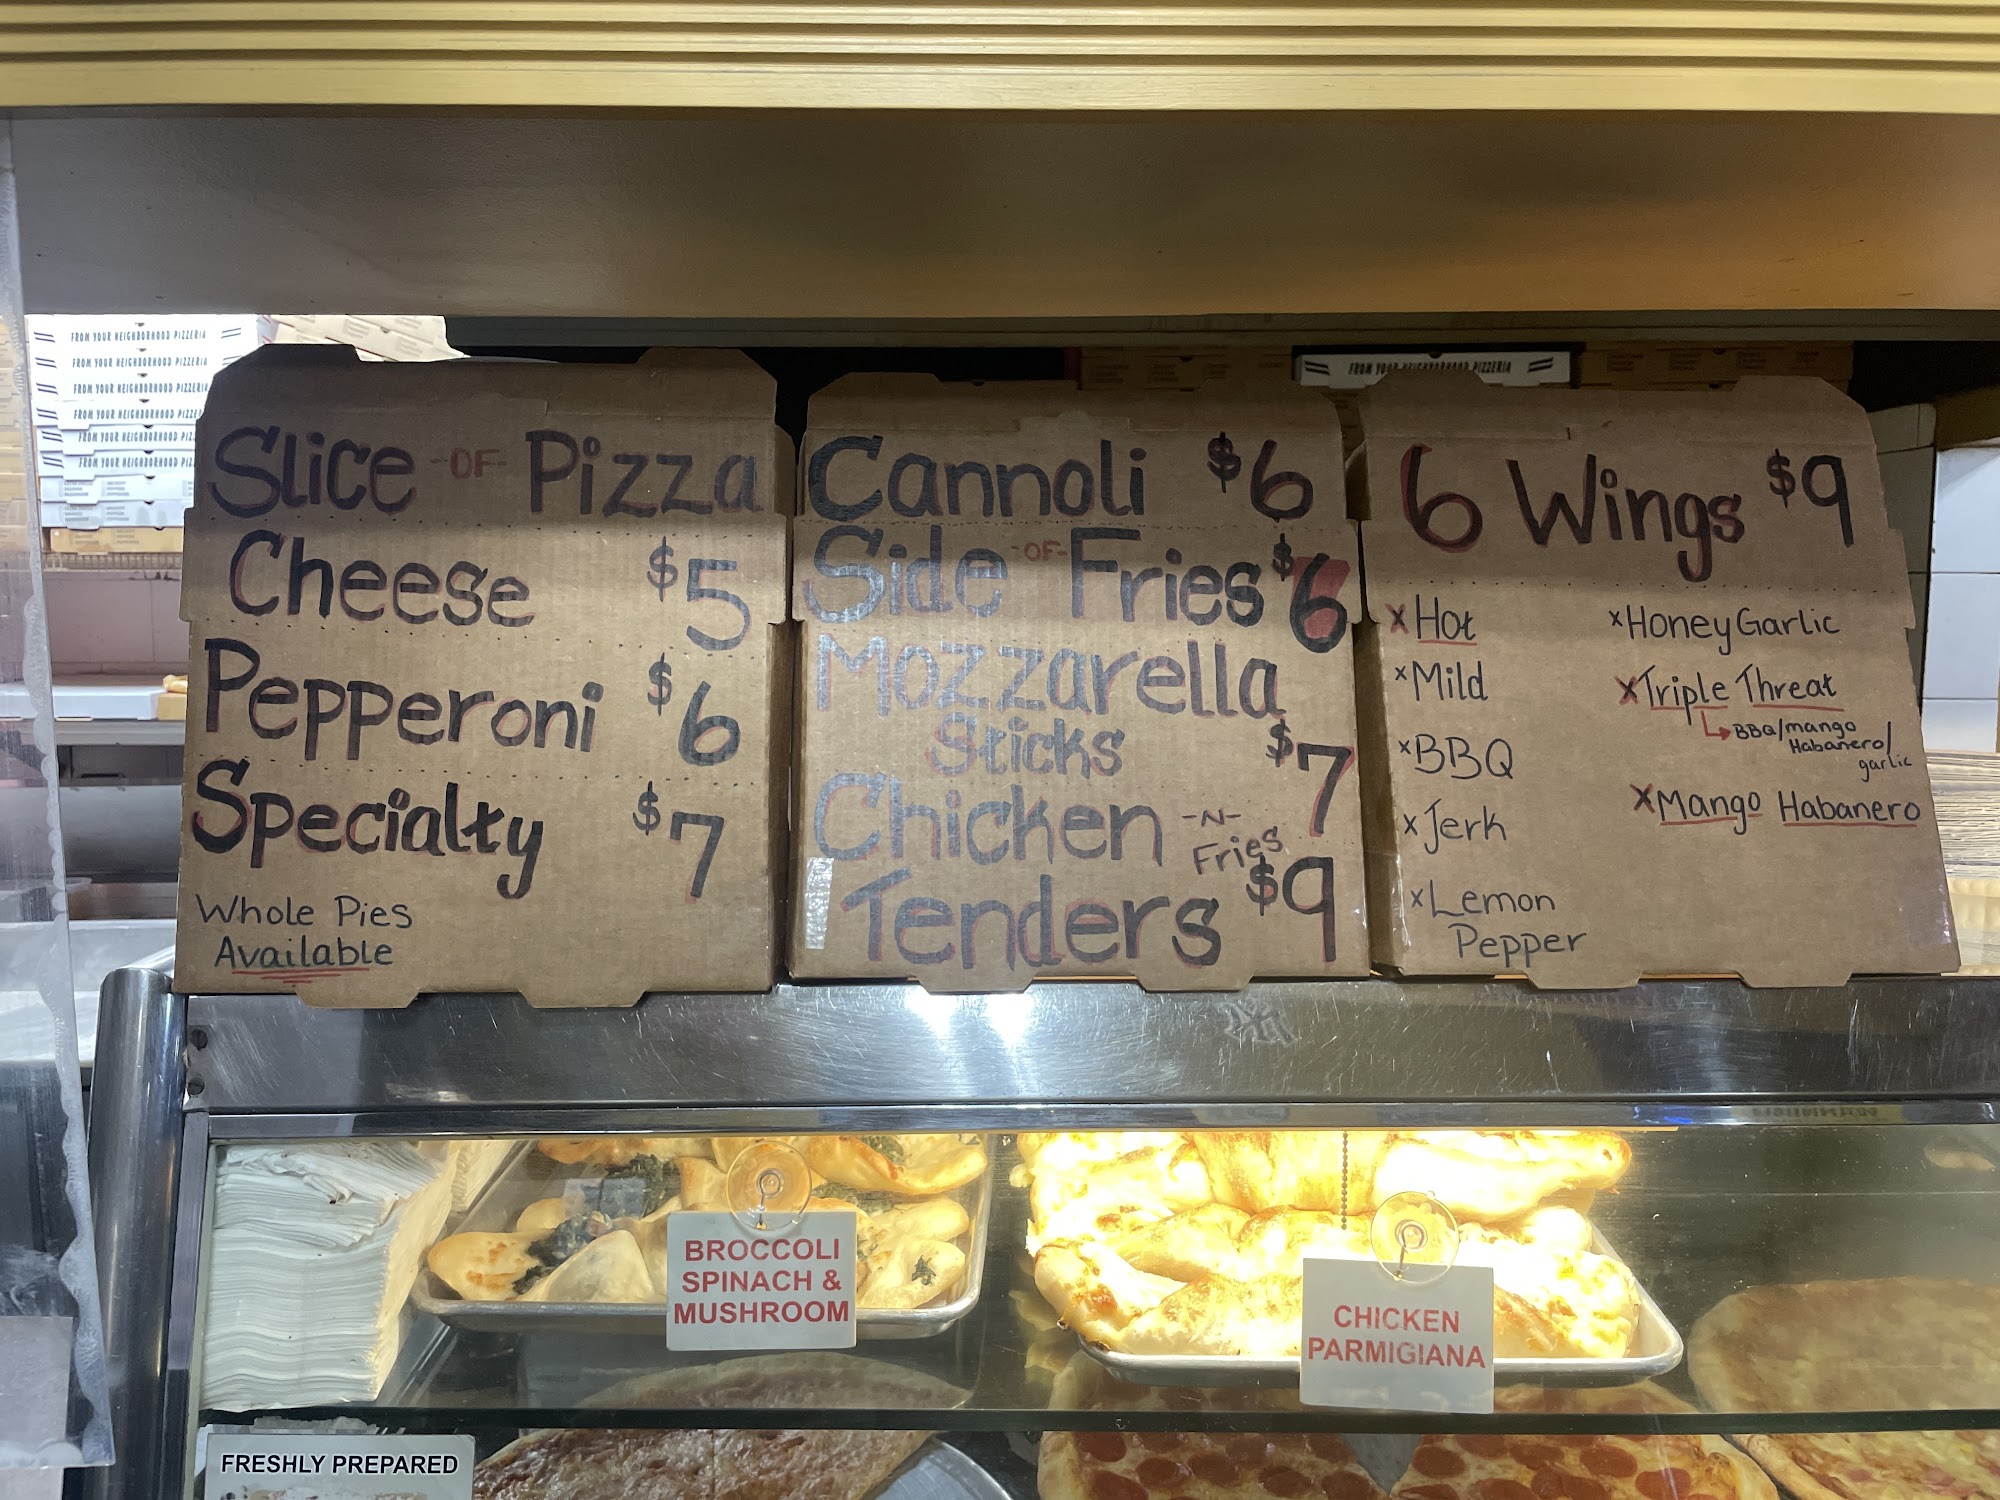 FROM YOUR NEIGHBORHOOD PIZZERIA
FROM YOUR NEIGHBORHOOD PIZZERIA
FROM YOUR NEIGHBORHOOD PIZZERIA
FROM YOUR NEIGHBORHOOD PIZZE
FROM YOUR NEIGHBORHOOD PIZ
FROM YOUR NEIGHBORHOOD PIZ
FROM YOUR NEIGHBORHOOD PIZZERIA
Slice -OF- Pizza
Cheese $5
Pepperoni $6
Specialty $7
Whole Pies
Available
Cannoli $6
Side -OF- Fries $6
Mozzarella
Sticks $7
Chicken -N-
Fries
Tenders $9
6 Wings $9
x Hot
x Mild
x BBQ
x Jerk
x Lemon
Pepper
x Honey Garlic
x Triple Threat
BBQ/mango
Habanero/
garlic
x Mango Habanero
BROCCOLI
SPINACH &
MUSHROOM
CHICKEN
PARMIGIANA
FRESHLY PREPARED